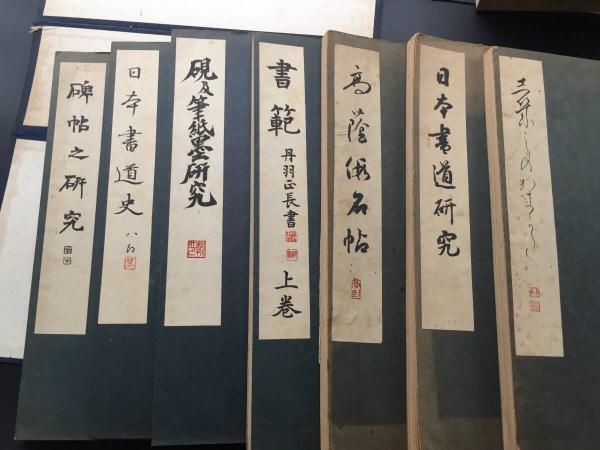 碑帖之研究
日本書道史
硯及筆紙墨研究
書範
丹羽正長書
上卷
高蔭假名帖
日本書道研究